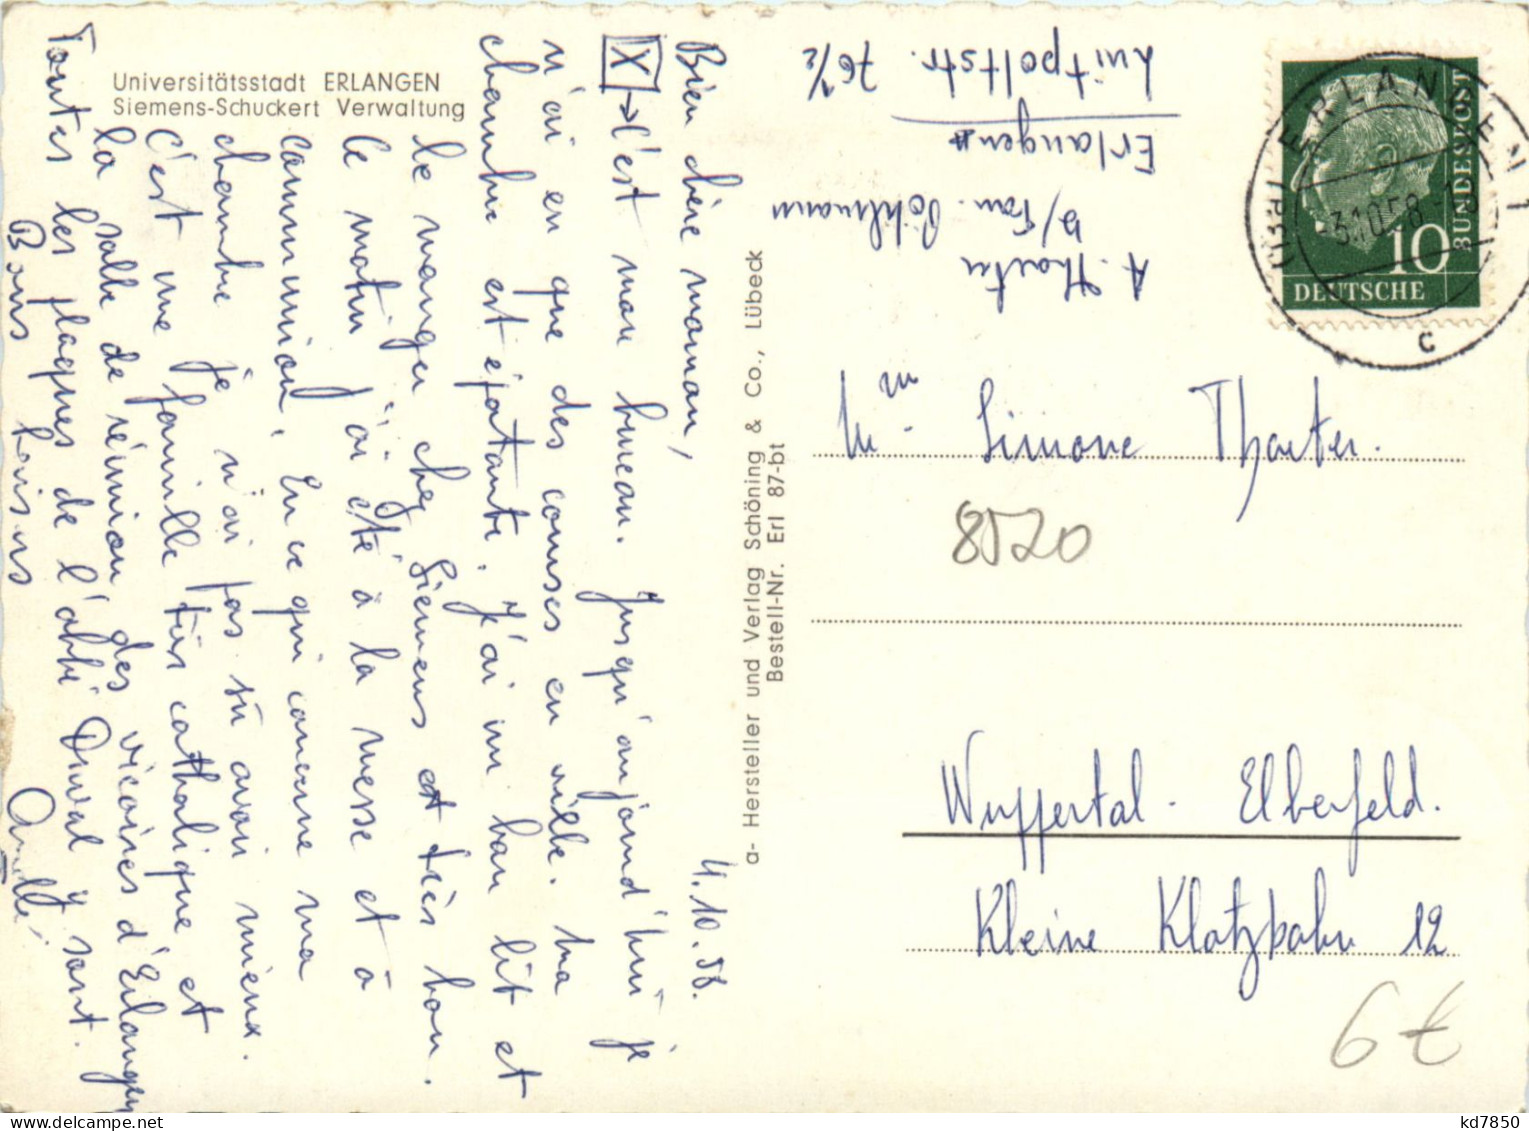 Universitätsstadt ERLANGEN
Siemens-Schuckert Verwaltung
4.10.58.
Bien chère maman,
X → C'est mon bureau. Jusqu'aujourd'hui je
n'ai eu que des courses en ville. Ma
chambre est épatante. J'ai un bon lit et
le manger chez Siemens est très bon.
Ce matin j'ai été à la messe et à
communion. En ce qui concerne ma
chambre je n'ai pas sû avoir mieux.
C'est une famille très catholique et
la salle de réunion des vicaires d'Erlangen
Toutes les plaques de l'abbé Duval y sont.
Bons baisers
a- Hersteller und Verlag Schöning & Co., Lübeck
Bestell-Nr. Erl 87-bt
A. Thaeter
b/Fam. Pöhlmann
Erlangen
Luitpoldstr. 76 1/2
ERLANGEN 1
-3.10.58
c
10
DEUTSCHE
BUNDESPOST
Mme Simone Thaeter.
8520
Wuppertal - Elberfeld.
Kleine Klotzbahn 12
6€
kd7850